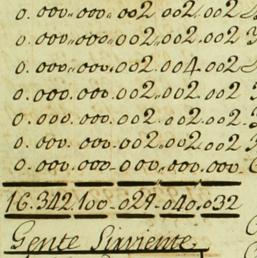 0.000.000.002.002.002
0.000.000.002.002.002
0.000.000.002.004.002
0.000.000.002.002.002
0.000.000.002.002.002
0.000.000.002.002.002
0.000.000.000.000.000
16.342.100.029.040.032
Gente Sirviente.